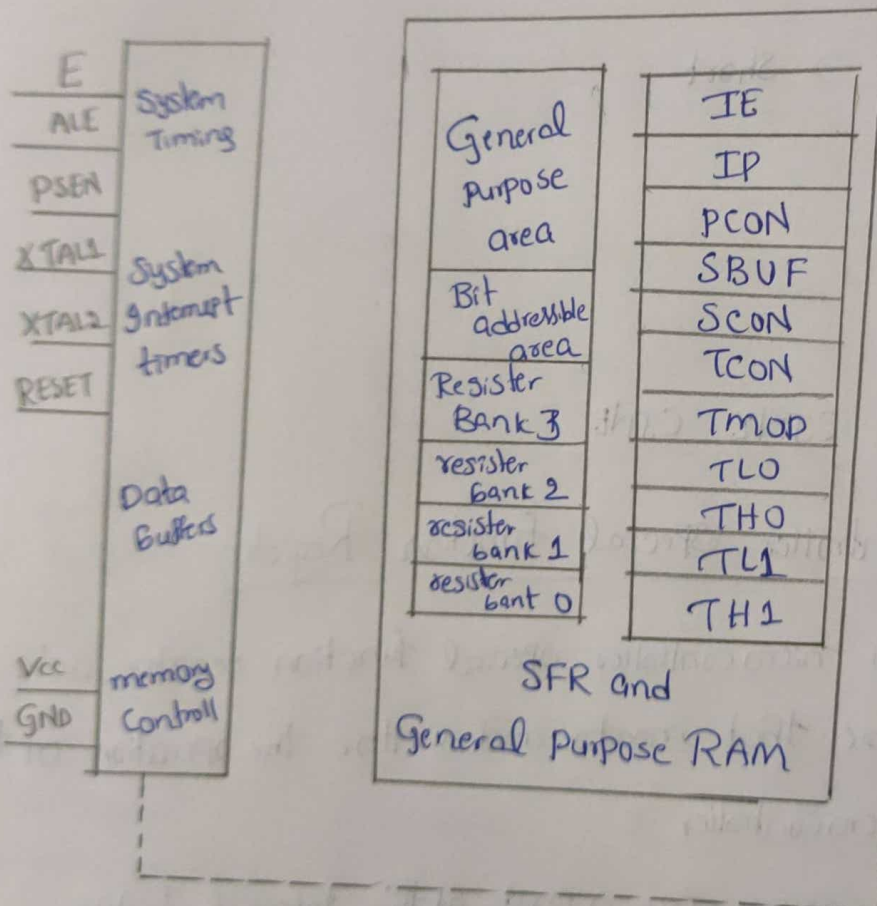 E
ALE
PSEN
XTAL1
XTAL2
RESET
Vcc
GND
System
Timing
System
Interrupt
timers
Data
Buffers
memory
Controll
General
Purpose
area
Bit
addressible
area
Register
Bank 3
resister
bank 2
resister
bank 1
resister
bant 0
IE
IP
PCON
SBUF
SCON
TCON
TMOD
TLO
THO
TL1
TH1
SFR and
General Purpose RAM